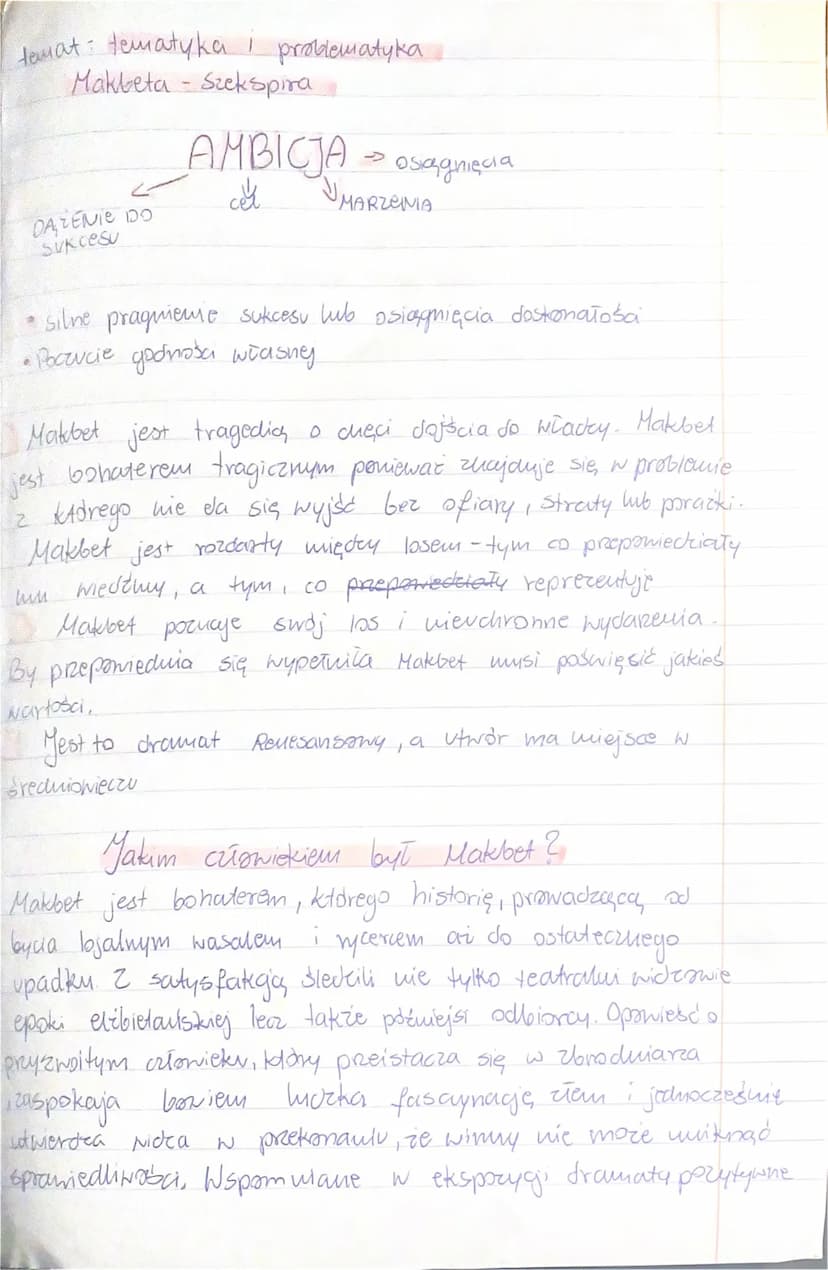 temat: tematyka i problematyka
Makbeta - Szekspira
AMBICJA → osiągnięcia
DĄŻENIE DO SUKCESU
cel
MARZENIA
• silne pragnienie sukcesu lub osiągnięcia doskonałości
• Poczucie godności własnej
Makbet jest tragedią o chęci dojścia do władzy. Makbet
jest bohaterem tragicznym ponieważ znajduje się w problemie
z którego nie da się wyjść bez ofiary, straty lub porażki.
Makbet jest rozdarty między losem - tym co przepowiedziały
mu wiedźmy, a tym, co przepowiedziały reprezentuje
Makbet poznaje swój los i nieuchronne wydarzenia.
By przepowiednia się wypełniła Makbet musi poświęsić jakieś
wartości.
Jest to dramat Renesansowy, a utwór ma miejsce w
średniowieczu
Jakim człowiekiem był Makbet?
Makbet jest bohaterem, którego historię, prowadzącą od
bycia lojalnym wasalem i rycerzem aż do ostatecznego
upadku. Z satysfakcją śledzili nie tylko teatralni widzowie
epoki elżbietańskiej lecz także późniejsi odbiorcy. Opowieść o
przyzwoitym człowieku, który przeistacza się w zbrodniarza
zaspokaja bowiem ludzką fascynację złem i jednocześnie
utwierdza widza w przekonaniu, że winny nie może uniknąć
sprawiedliwości. Wspomniane w ekspozycji dramatu pozytywne